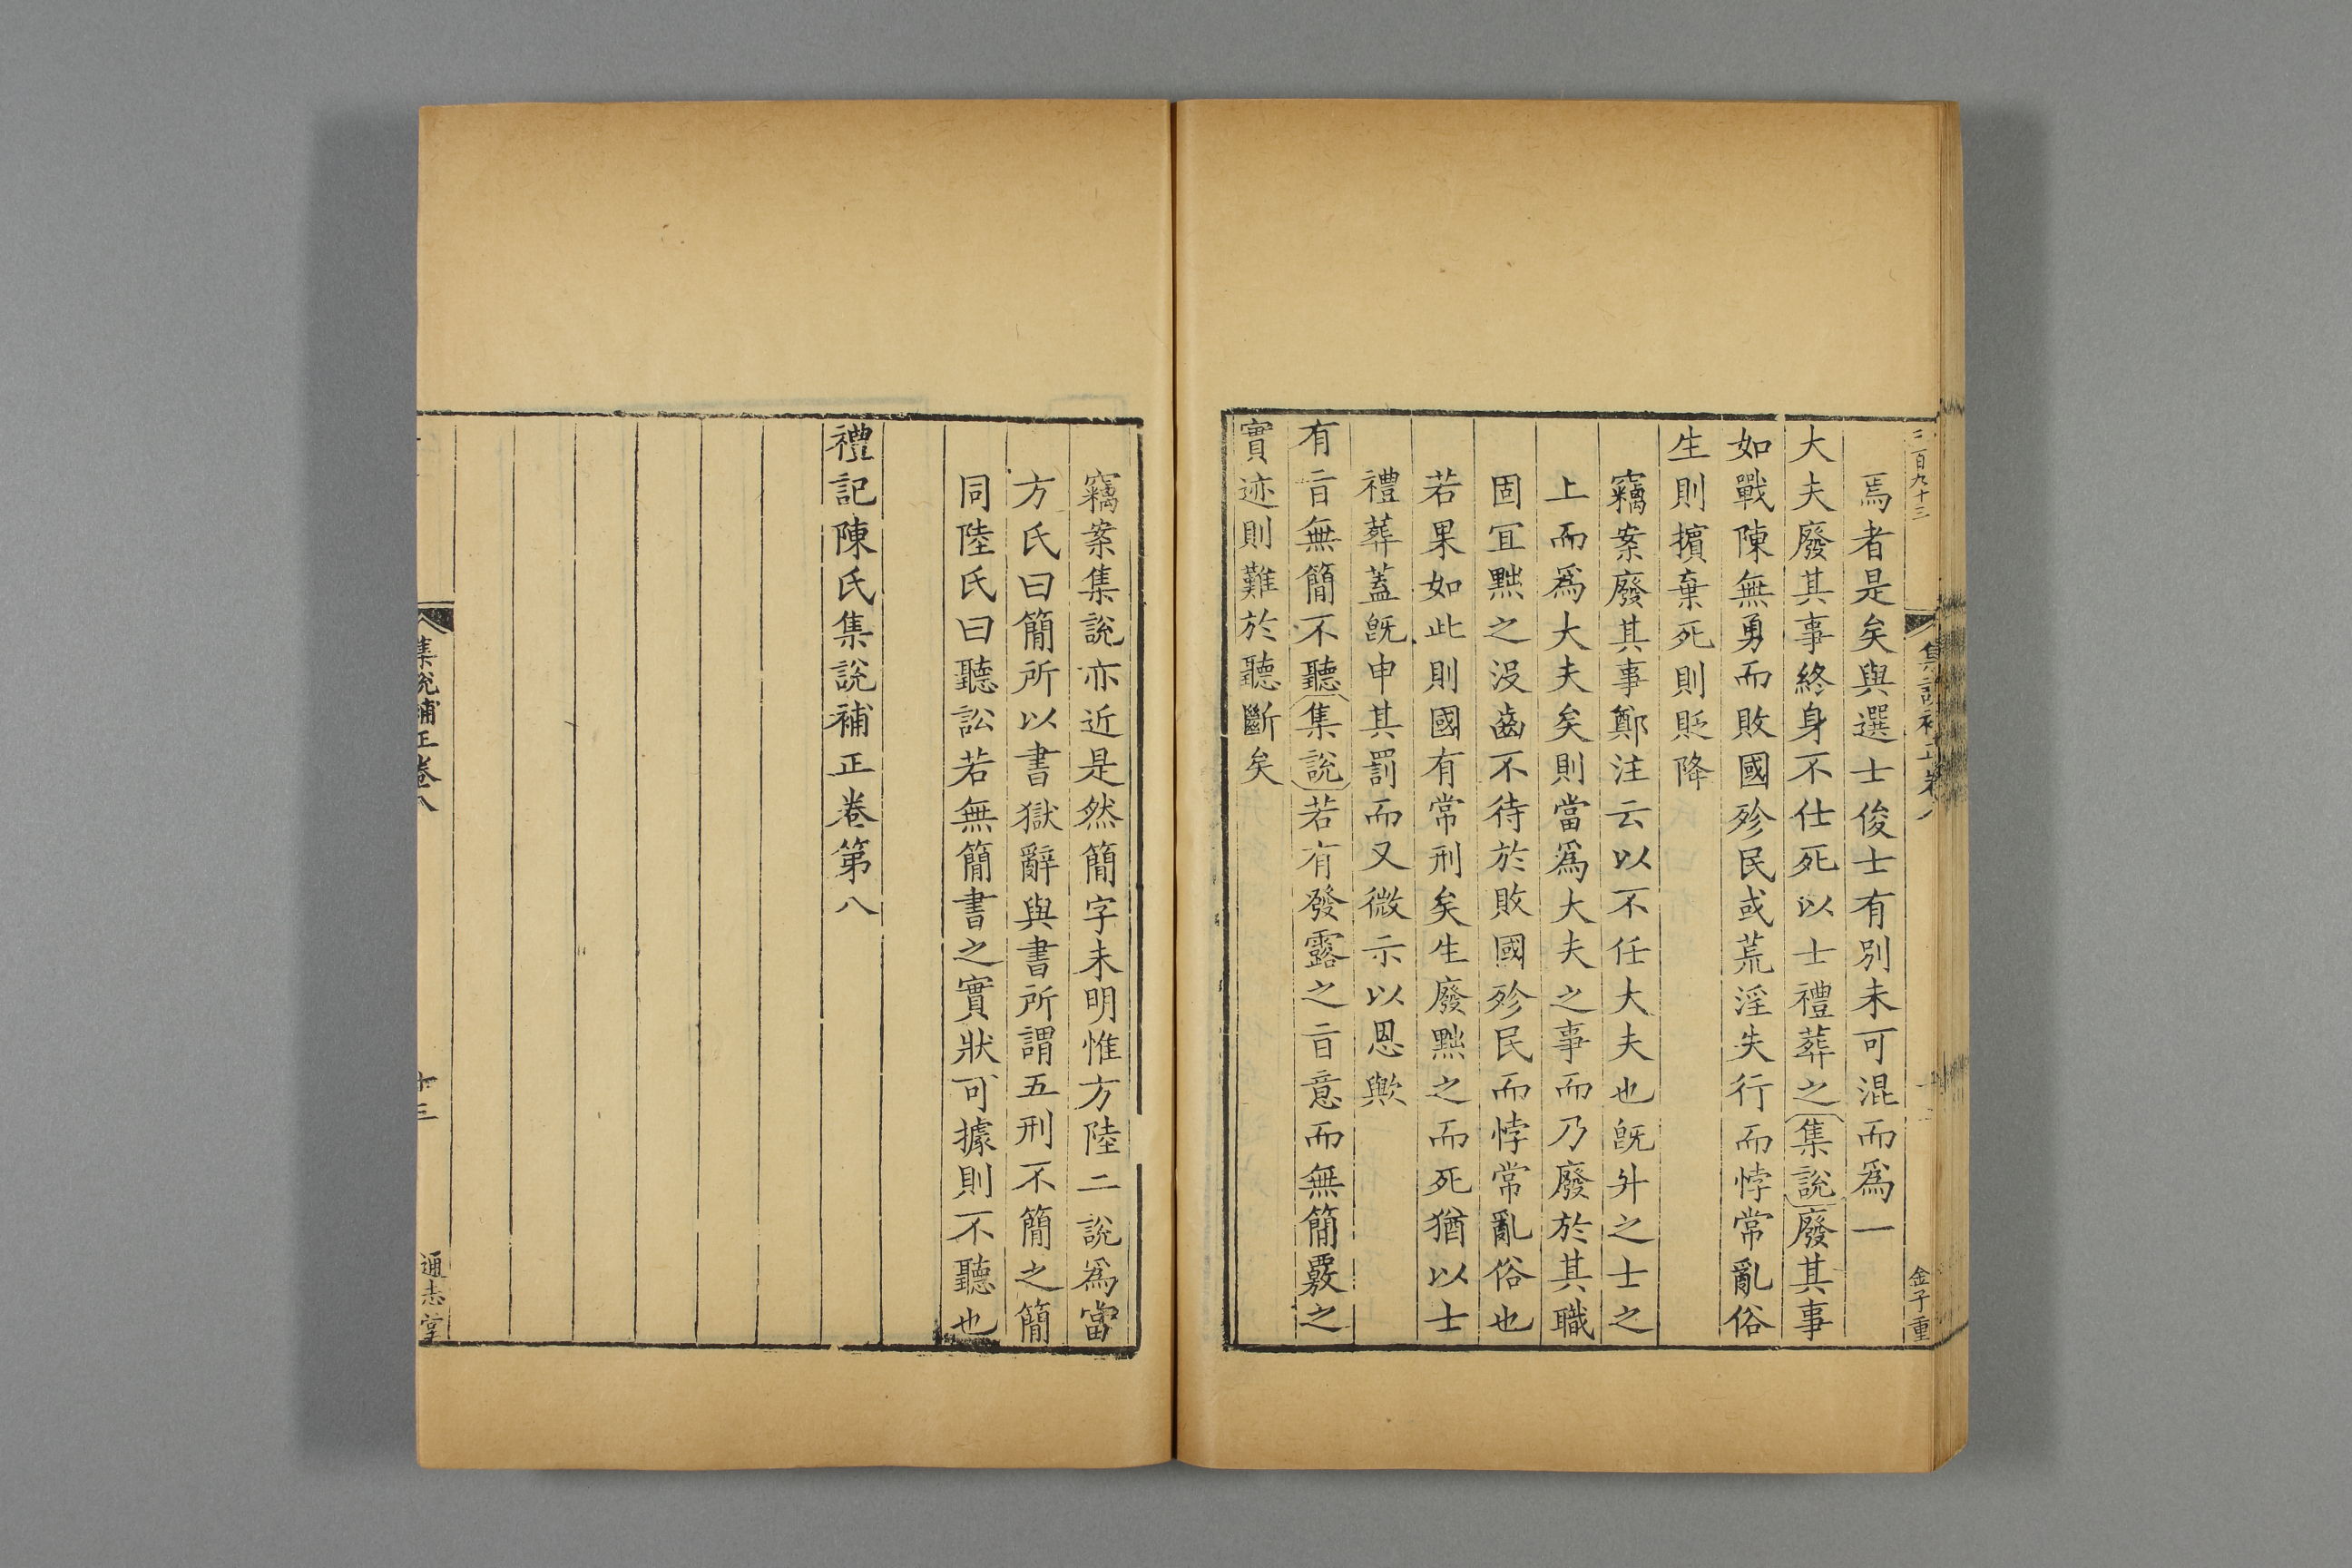 三百九十三
焉者是矣與選士俊士有別未可混而爲一
大夫廢其事終身不仕死以士禮葬之集說廢其事
如戰陳無勇而敗國殄民或荒淫失行而悖常亂俗
生則擯棄死則貶降
竊案廢其事鄭注云以不任大夫也旣升之士之
上而爲大夫矣則當爲大夫之事而乃廢於其職
固宜黜之沒齒不待於敗國殄民而悖常亂俗也
若果如此則國有常刑矣生廢黜之而死猶以士
禮葬蓋旣申其罰而又微示以恩歟
有旨無簡不聽集說若有發露之旨意而無簡覈之
實迹則難於聽斷矣
集說補正卷八
金子重
竊案集說亦近是然簡字未明惟方陸二說爲當
方氏曰簡所以書獄辭與書所謂五刑不簡之簡
同陸氏曰聽訟若無簡書之實狀可據則不聽也
禮記陳氏集說補正卷第八
集說補正卷八
十三
通志堂